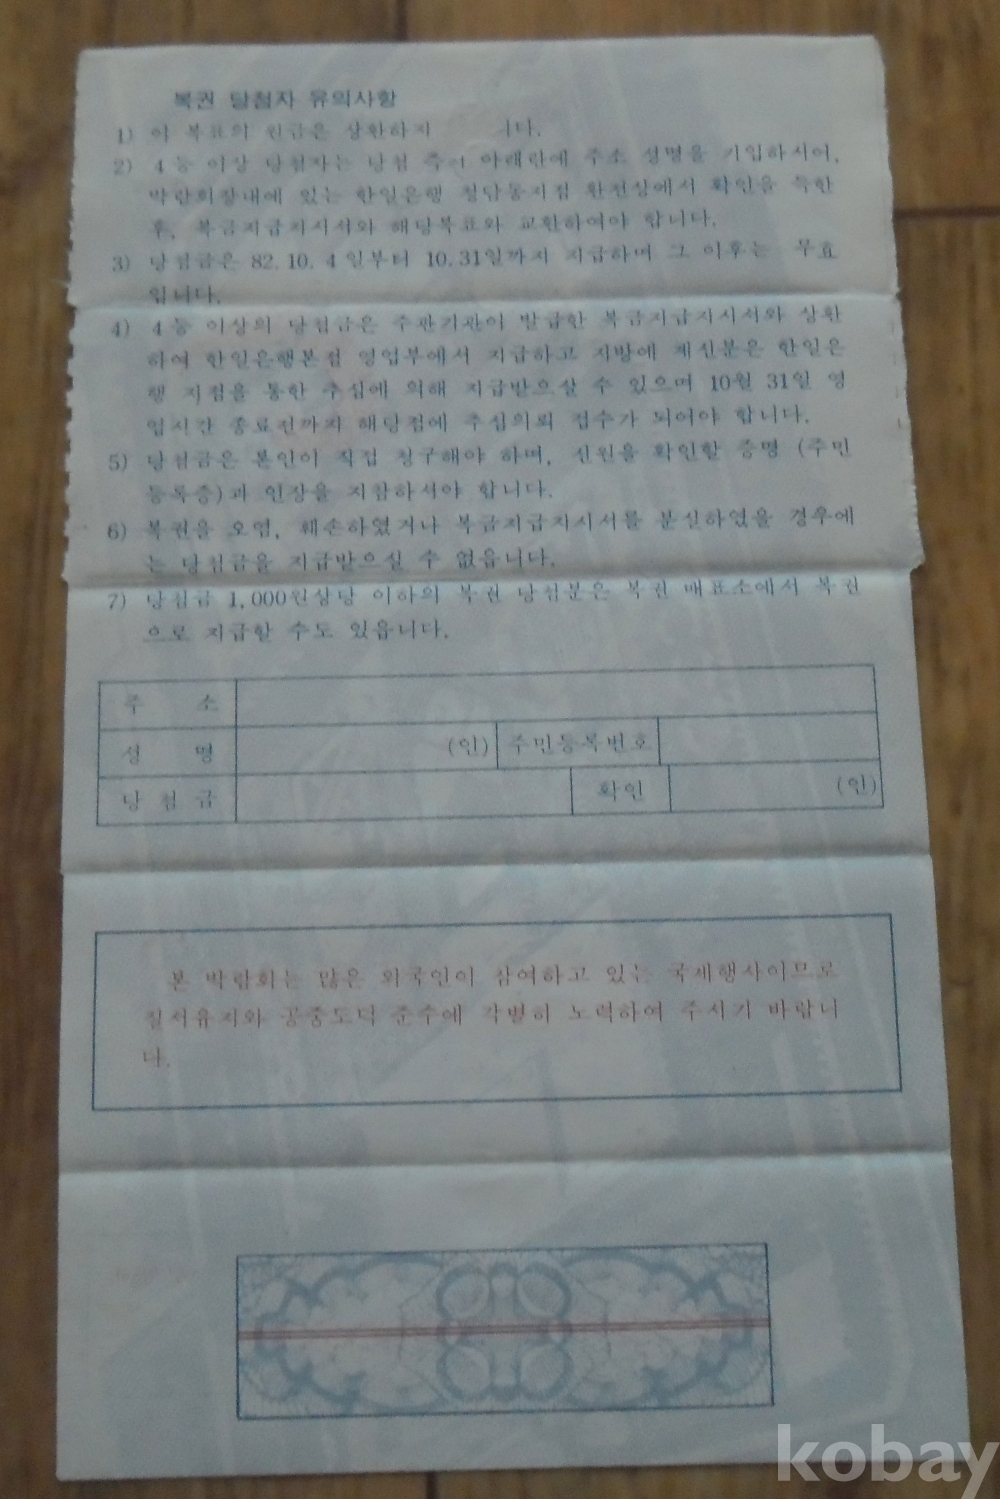 복권 당첨자 유의사항
1) 이 복표의 원금은 상환하지 니다.
2) 4등 이상 당첨자는 당첨 즉시 아래란에 주소 성명을 기입하시어,
박람회장내에 있는 한일은행 청담동지점 환전상에서 확인을 득한
후, 복금지급지시서와 해당복표와 교환하여야 합니다.
3) 당첨금은 82. 10. 4일부터 10. 31일까지 지급하며 그 이후는 무효
입니다.
4) 4등 이상의 당첨금은 주관기관이 발급한 복금지급지시서와 상환
하여 한일은행본점 영업부에서 지급하고 지방에 계신분은 한일은
행 지점을 통한 추심에 의해 지급받으실 수 있으며 10월 31일 영
업시간 종료전까지 해당점에 추심의뢰 접수가 되어야 합니다.
5) 당첨금은 본인이 직접 청구해야 하며, 신원을 확인할 증명 (주민
등록증)과 인장을 지참하셔야 합니다.
6) 복권을 오염, 훼손하였거나 복금지급지시서를 분실하였을 경우에
는 당첨금을 지급받으실 수 없읍니다.
7) 당첨금 1,000원상당 이하의 복권 당첨분은 복권 매표소에서 복권
으로 지급할 수도 있읍니다.
주 소
성 명 (인) 주민등록번호
당 첨 금 확인 (인)
본 박람회는 많은 외국인이 참여하고 있는 국제행사이므로
질서유지와 공중도덕 준수에 각별히 노력하여 주시기 바랍니
다.
kobay